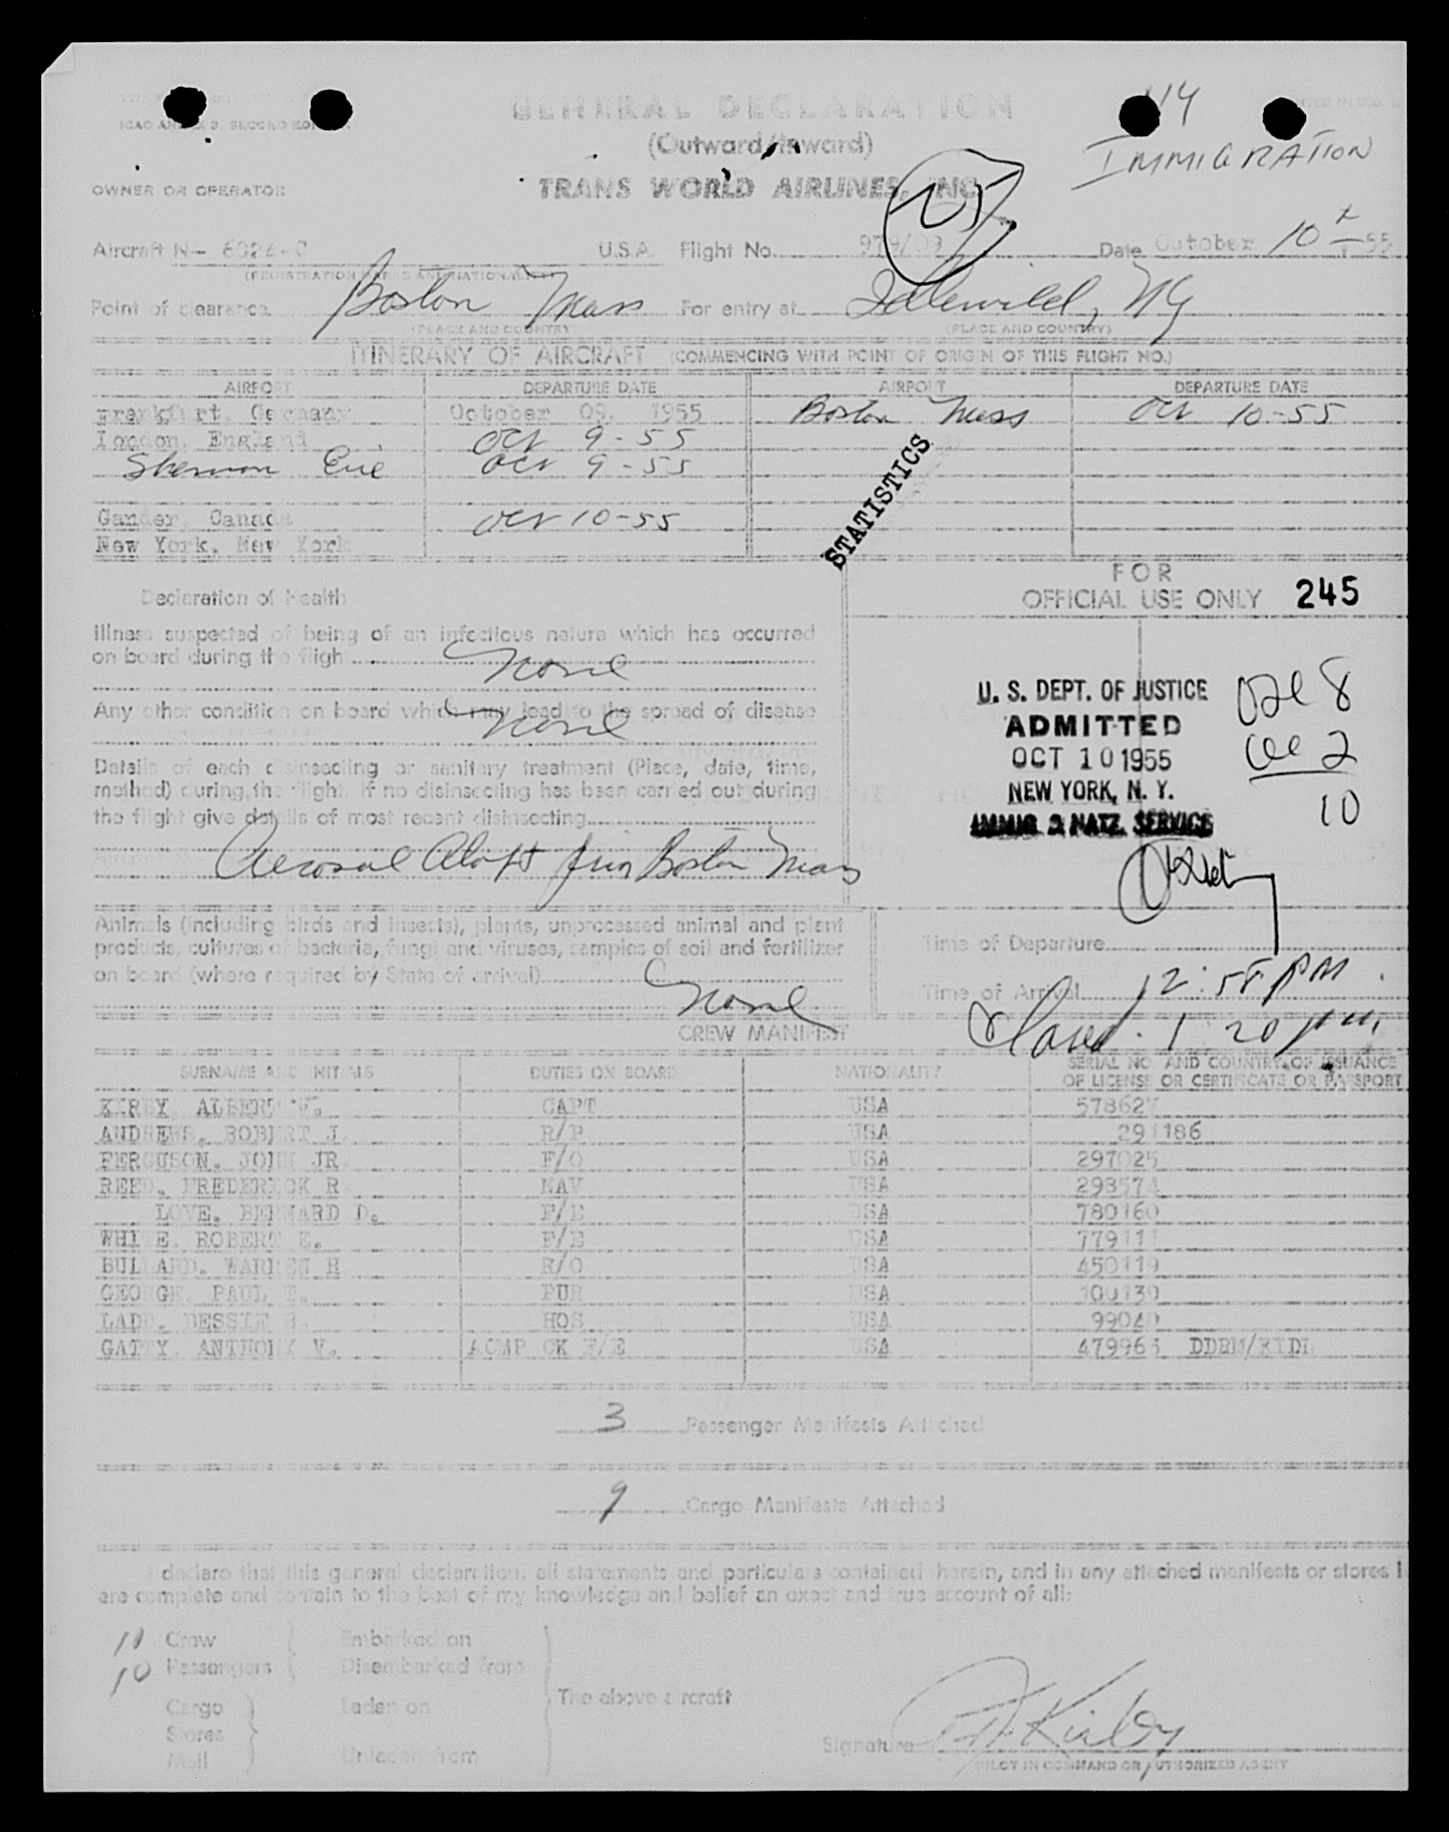 114
IMMIGRATION
GENERAL DECLARATION
(Outward/Inward)
OWNER OR OPERATOR
TRANS WORLD AIRLINES, INC.
Aircraft N— 6024-C U.S.A. Flight No. Date October 10 55
(REGISTRATION MARKS AND NATIONALITY)
Point of clearance Boston Mass For entry at Idlewild, NY
(PLACE AND COUNTRY) (PLACE AND COUNTRY)
ITINERARY OF AIRCRAFT (COMMENCING WITH POINT OF ORIGIN OF THIS FLIGHT NO.)
AIRPORT DEPARTURE DATE AIRPORT DEPARTURE DATE
Frankfurt, Germany October 09, 1955 Boston Mass Oct 10-55
London, England Oct 9-55
Shannon Eire Oct 9-55
Gander, Canada Oct 10-55
New York, New York
STATISTICS
FOR
OFFICIAL USE ONLY 245
Declaration of Health
Illness suspected of being of an infectious nature which has occurred
on board during the flight None
Any other condition on board which may lead to the spread of disease
None
Details of each disinsecting or sanitary treatment (Place, date, time,
method) during the flight. If no disinsecting has been carried out during
the flight give details of most recent disinsecting
Aerosol Aloft from Boston Mass
U. S. DEPT. OF JUSTICE
ADMITTED
OCT 10 1955
NEW YORK, N. Y.
IMMIG. & NATZ. SERVICE
8
2
10
Animals (including birds and insects), plants, unprocessed animal and plant
products, cultures of bacteria, fungi and viruses, samples of soil and fertilizer
on board (where required by State of arrival)
None
Time of Departure
Time of Arrival 12:58 PM
Closed. 1:20 pm
CREW MANIFEST
SURNAME AND INITIALS DUTIES ON BOARD NATIONALITY SERIAL NO. AND COUNTRY OF ISSUANCE
OF LICENSE OR CERTIFICATE OR PASSPORT
KIRBY, ALBERT W. CAPT USA 578627
ANDREWS, ROBERT J R/P USA 291186
FERGUSON, JOHN JR F/O USA 297025
REED, FREDERICK R NAV USA 298574
LOVE, BERNARD D. F/E USA 780160
WHITE, ROBERT E. F/E USA 779111
BULLARD, WARREN H R/O USA 450119
GEORGE, PAUL PUR USA 100139
LADD, BESSIE HOS USA
GATTY, ANTHONY V. ACMP CK F/E USA
3 Passenger Manifests Attached
9 Cargo Manifests Attached
I declare that this general declaration, all statements and particulars contained herein, and in any attached manifests or stores
are complete and contain to the best of my knowledge and belief an exact and true account of all:
10 Crew Embarked on
10 Passengers Disembarked from
The above aircraft
Cargo Laden on
Stores
Mail Unladen from
Signature Kirby
PILOT IN COMMAND OR AUTHORIZED AGENT